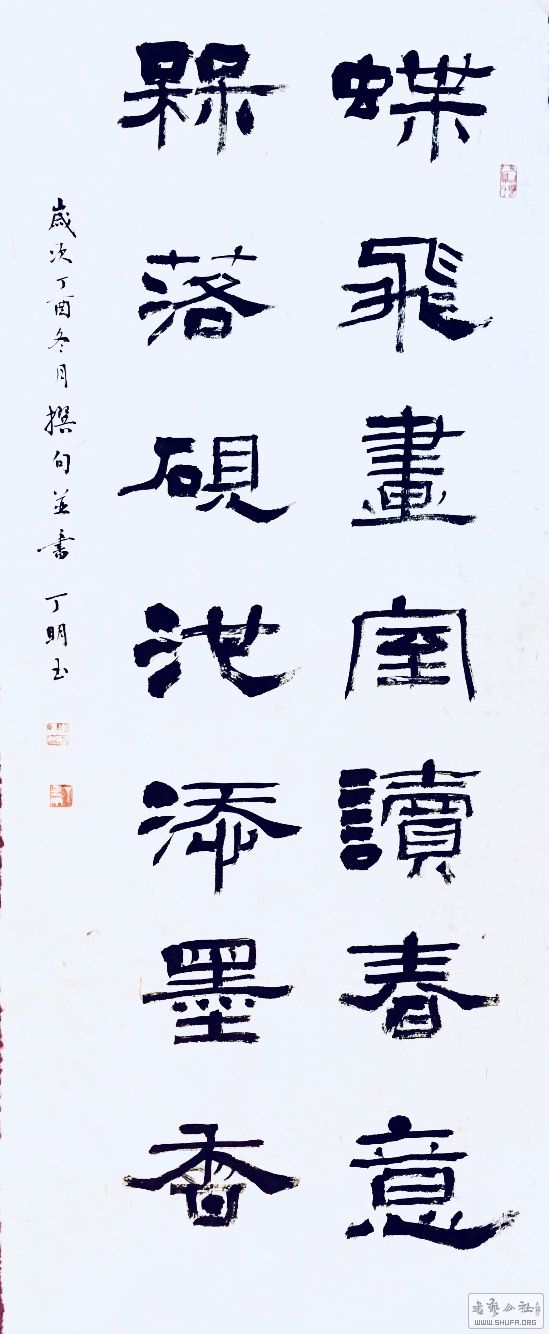 蝶飛畫室讀春意
槑落硯池添墨香
歲次丁酉冬月撰句並書 丁明玉
書藝公社
WWW.SHUFA.ORG